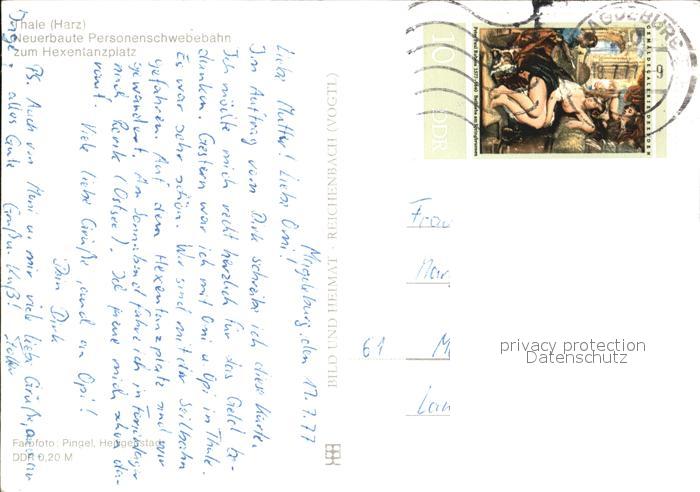 Thale (Harz)
Neuerbaute Personenschwebebahn
zum Hexentanzplatz
Magdeburg, den 17.7.77
Liebe Mutter! Liebe Omi!
Im Auftrag vom Dirk schreibe ich diese Karte.
Ich möchte mich recht herzlich für das Geld be-
danken. Gestern war ich mit Omi u Opi in Thale.
Es war sehr schön. Wir sind mit der Seilbahn
gefahren. Auf dem Hexentanzplatz sind wir
gewandert. Am Sonnabend fahre ich in Ferienlager
nach (Ostsee). Ich freue mich schon da-
rauf. Viele liebe Grüße, auch an Opi!
Dein Dirk
PS. Auch von Omi u. mir viele liebe Grüße, an
alles Gute
Gruß u. Kuß!
BILD UND HEIMAT · REICHENBACH (VOGTL)
Farbfoto: Pingel, Heiligenstadt
DDR 0,20 M
10 DDR
GEMÄLDEGALERIE DRESDEN
MAGDEBURG
Frau
Mar
61 M
privacy protection
Datenschutz